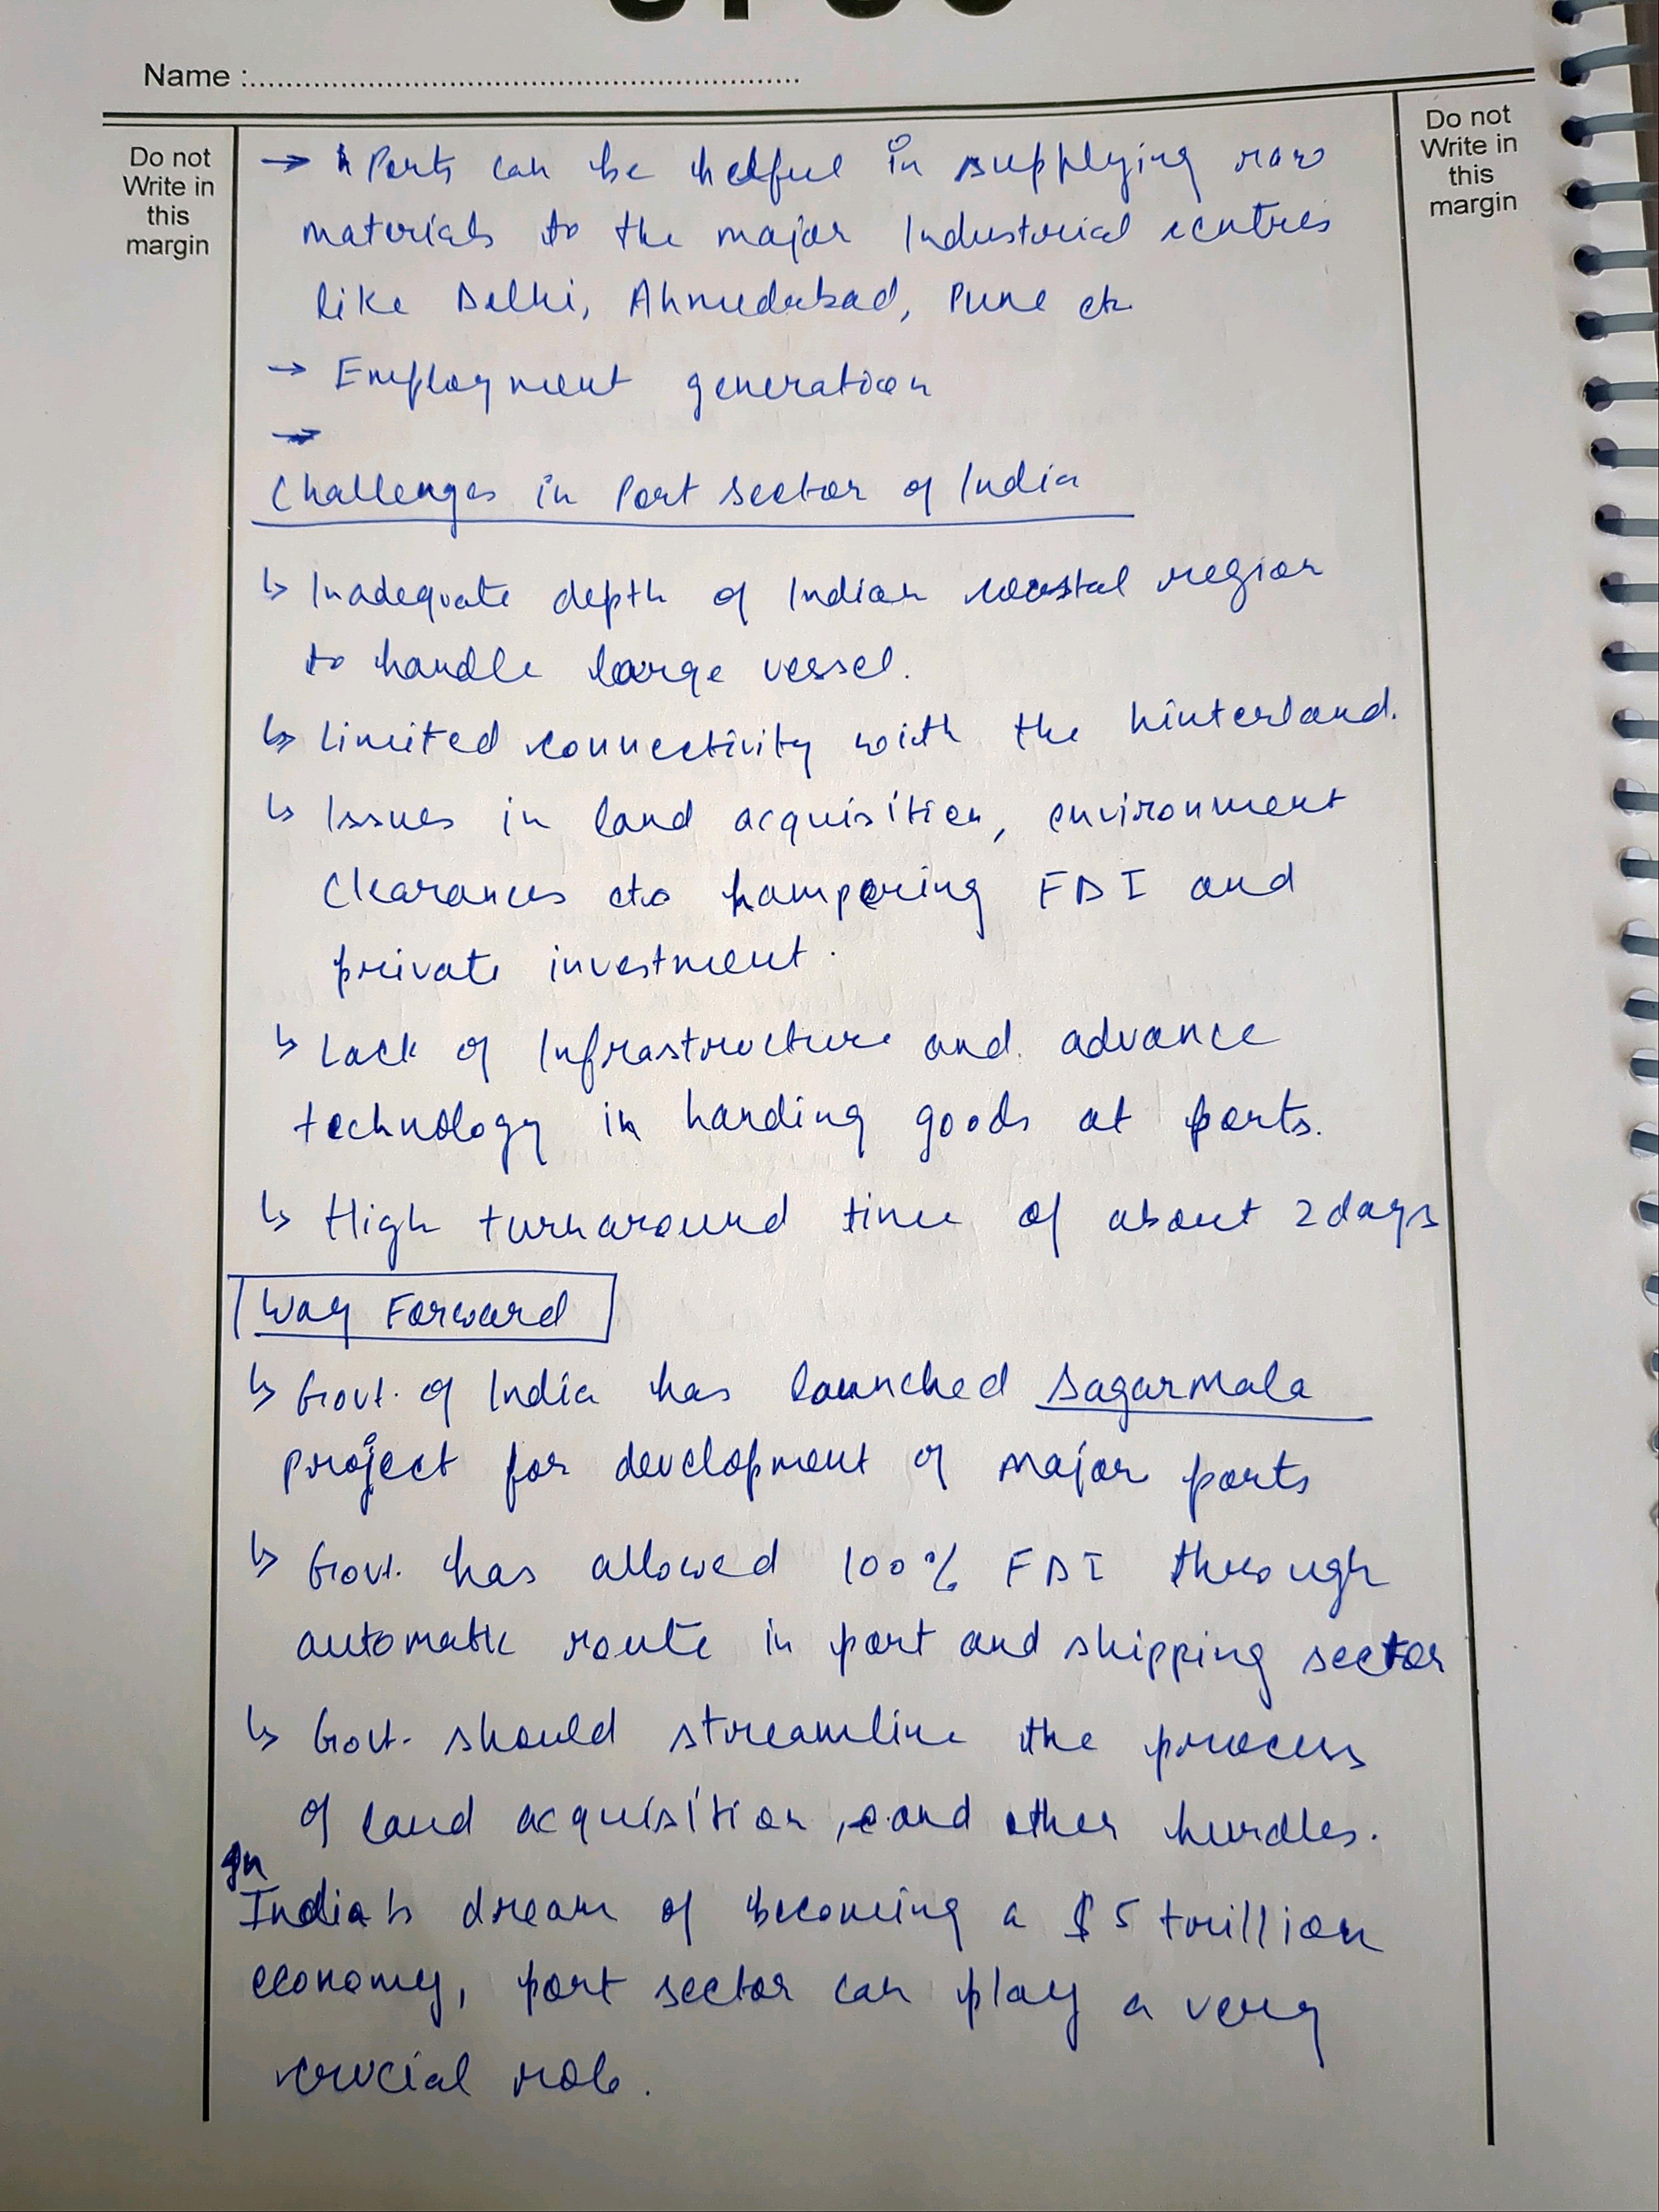 UPSC
Name :
Do not
Write in
this
margin
Do not
Write in
this
margin
→ Ports can be helpful in supplying raw
materials to the major Industorial centres
like Delhi, Ahmedabad, Pune etc.
→ Employment generation
→
Challenges in Port sector of India
↳ Inadequate depth of Indian coastal region
to handle large vessel.
↳ Limited connectivity with the hinterland.
↳ Issues in land acquisition, environment
clearances etc hampering FDI and
private investment.
↳ Lack of Infrastructure and advance
technology in handing goods at ports.
↳ High turnaround time of about 2 days
Way Forward
↳ Govt. of India has launched Sagarmala
project for development of major ports
↳ Govt. has allowed 100% FDI through
automatic route in port and shipping sector
↳ Govt. should streamline the process
of land acquisition, and other hurdles.
In
India's dream of becoming a $5 trillion
economy, port sector can play a very
crucial role.